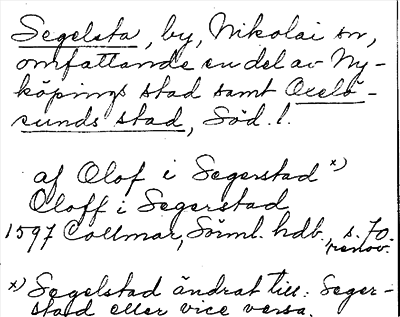 Segelsta, by, Nikolai sn,
omfattande en del av Ny-
köpings stad samt Oxelö-
sunds stad, Söd. l.
af Olof i Segerstad x)
Oloff i Segerstad
1597 Collmar, Sörml. hdb., s. 70.
renov.
x) Segelstad ändrat till: Seger-
stad eller vice versa.